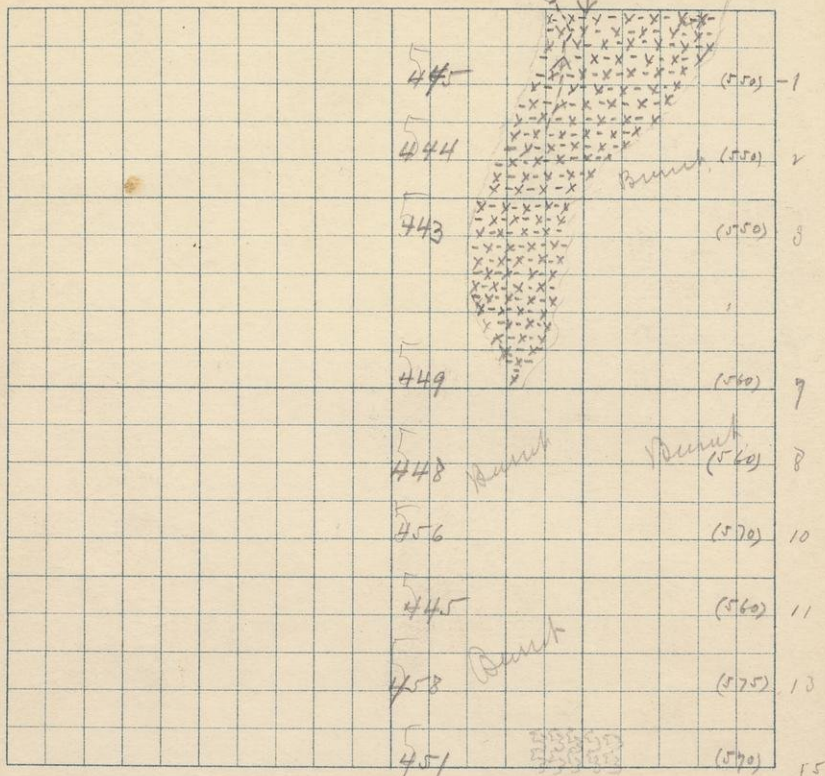 445 (550) -1
444 (550) 2
Burnt
443 (550) 3
449 (560) 7
448 Burnt Burnt (560) 8
456 (570) 10
445 (560) 11
Burnt
458 (575) 13
451 (570) 15